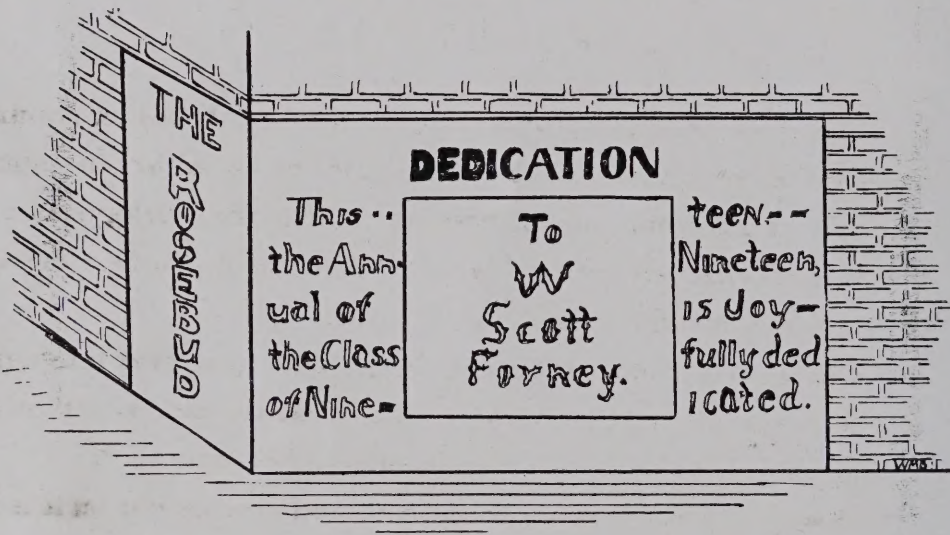 THE
ROSEBUD
DEDICATION
This --
the Ann-
ual of
the Class
of Nine-
To
W
Scott
Forney.
teen--
Nineteen,
is Joy-
fully ded
icated.
WMB